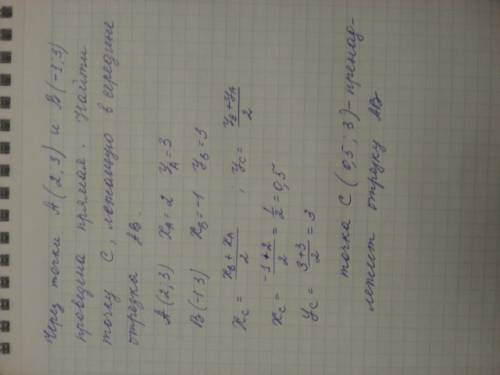 Через точки A(2,3) и B(-1,3)
проведена прямая. Найти
точку C, лежащую в середине
отрезка AB.
A(2,3) x_A=2 y_A=3
B(-1,3) x_B=-1 y_B=3
x_C = \frac{x_B+x_A}{2} ; y_C = \frac{y_B+y_A}{2}
x_C = \frac{-1+2}{2} = \frac{1}{2} = 0,5
y_C = \frac{3+3}{2} = 3
точка C (0,5; 3) - принад-
лежит отрезку AB